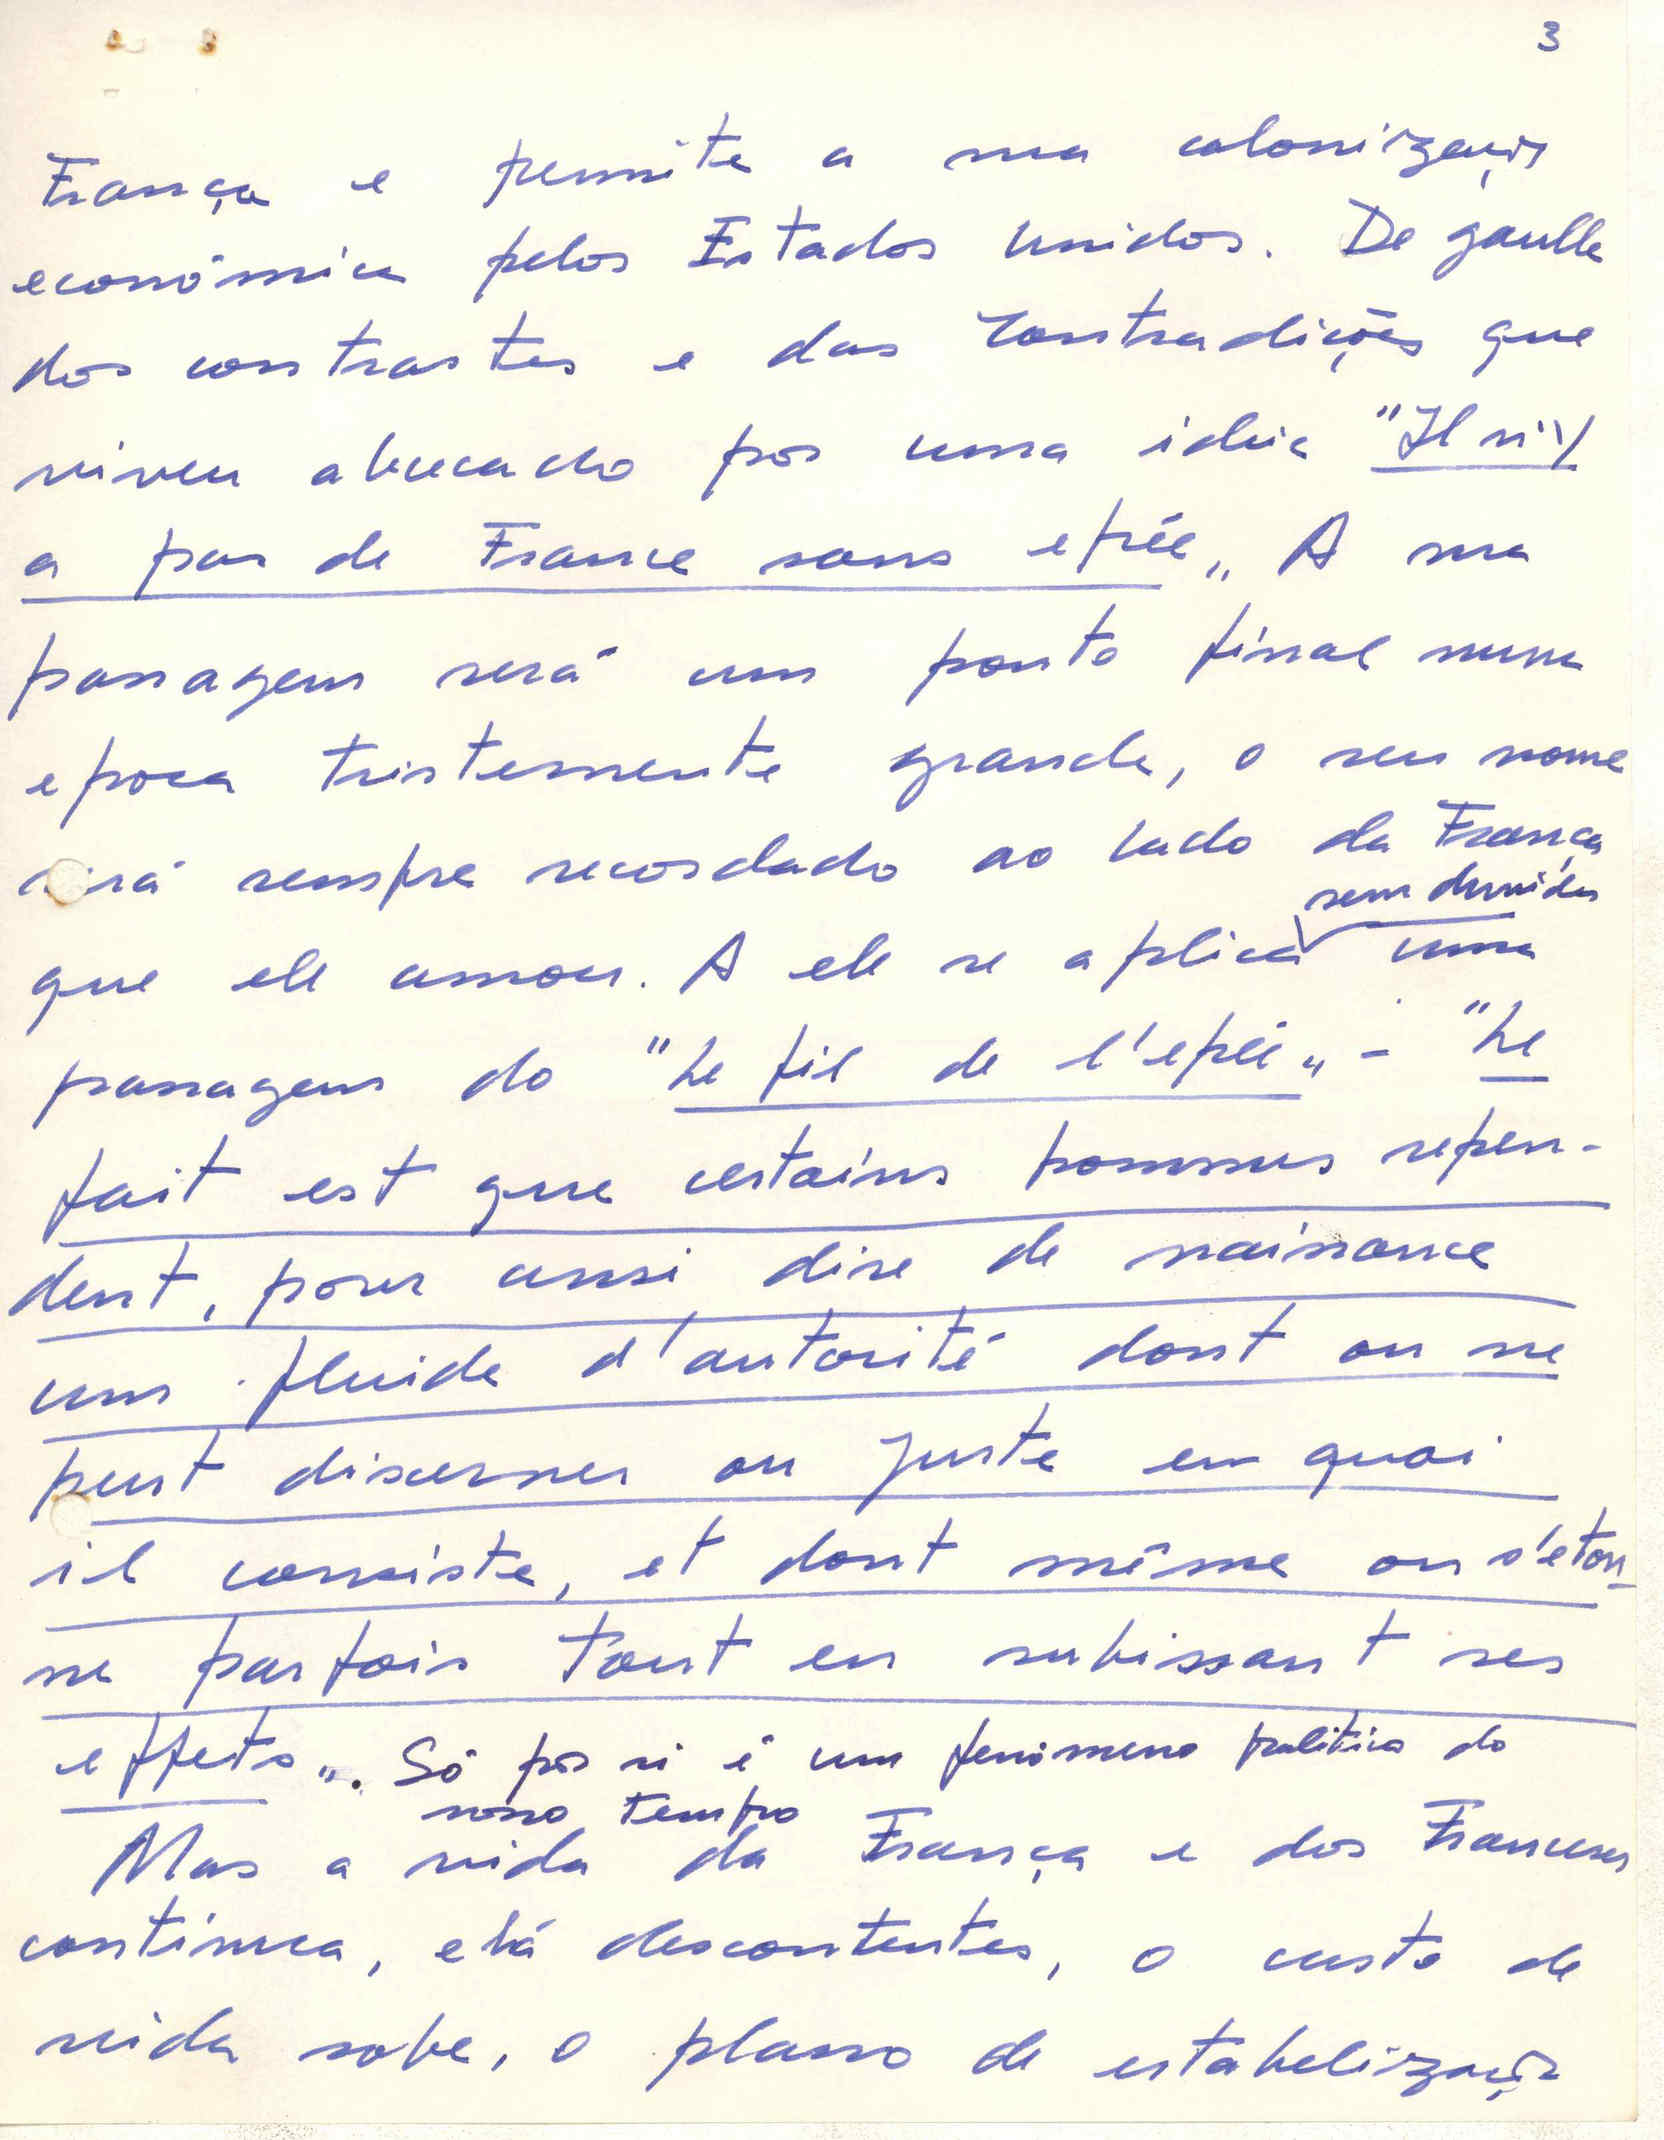 3
França e permite a sua colonização
económica pelos Estados Unidos. De Gaulle
dos contrastes e das contradições que
viveu abraçado por uma ideia "Il n'y
a pas de France sans epée" A sua
passagem será um ponto final numa
epoca tristemente grande, o seu nome
será sempre recordado ao lado da França
sem duvida
que ele amou. A ele se aplica uma
passagem do "Le fil de l'epée" - "Le
fait est que certains hommes repen-
dent, pour aussi dire de naissance
un fluide d'autorité dont on ne
peut discerner au juste en quoi
il consiste, et dont même on s'eton-
ne parfois tout en subissant ses
effets". Só por si é um fenómeno politico do
nosso tempo
Mas a vida da França e dos Franceses
continua, e há descontentes, o custo de
vida sobe, o plano de estabelização